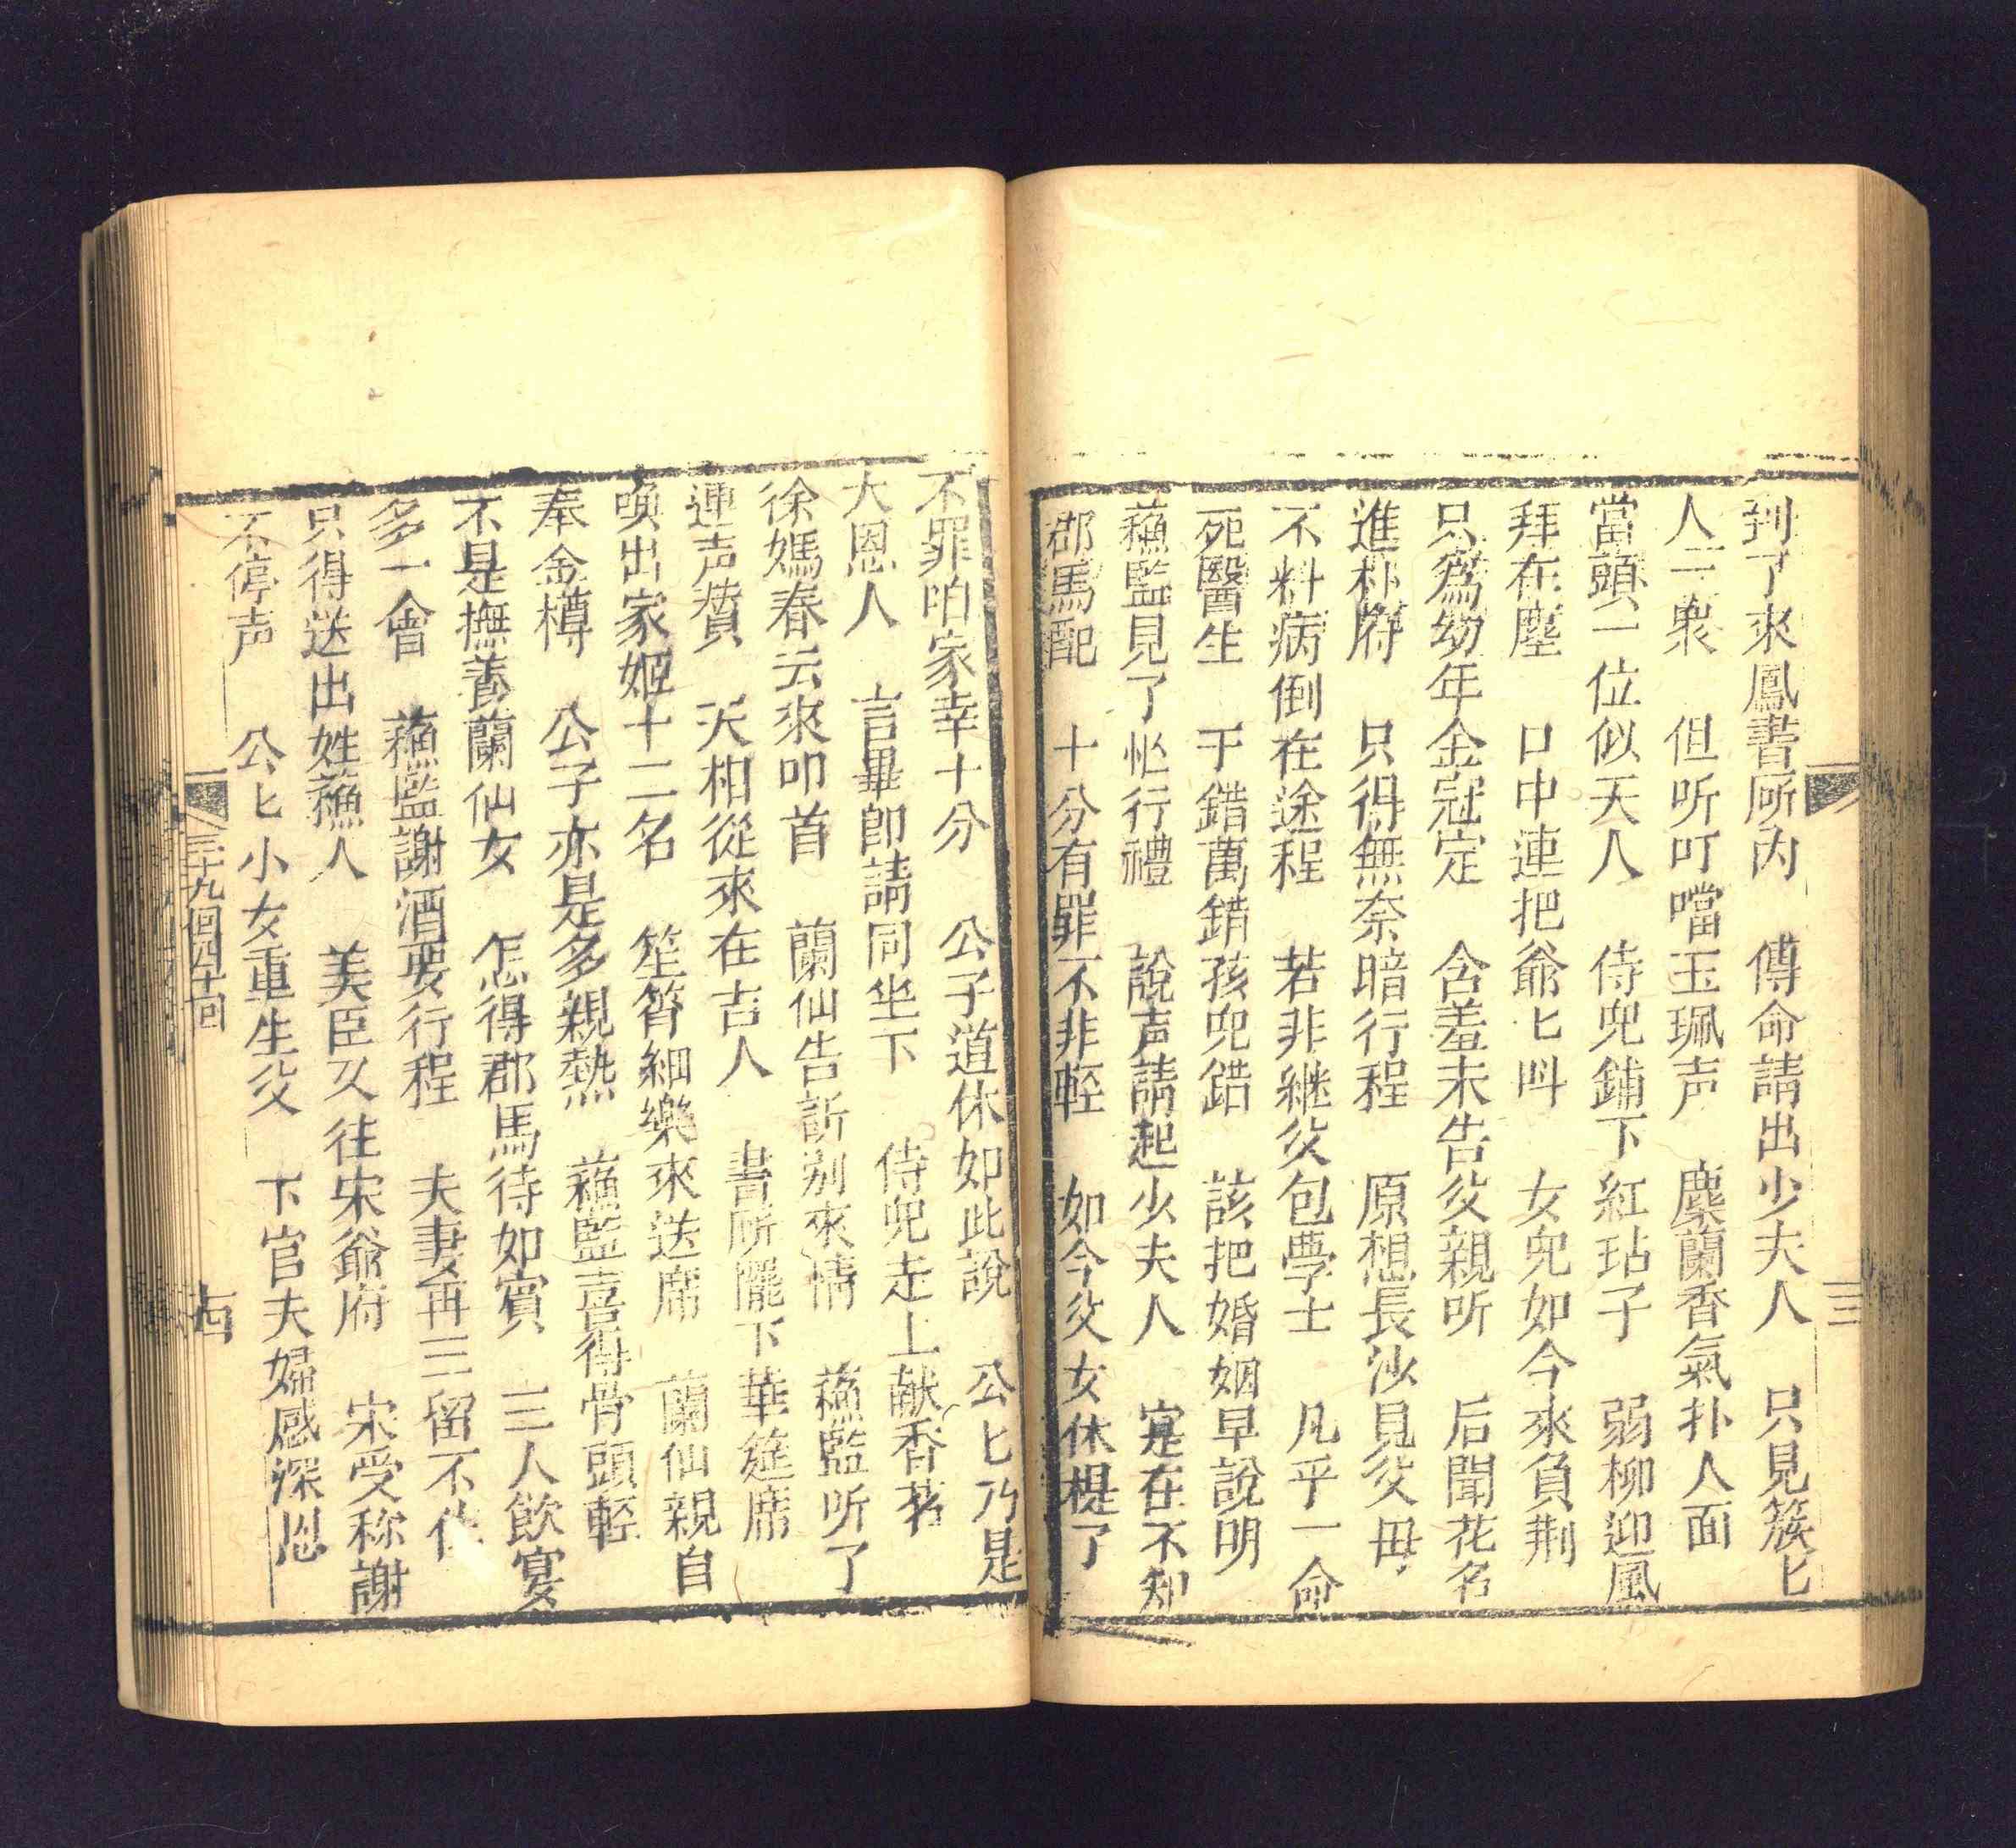 到了來鳳書所內　傅命請出少夫人　只見簇匕
人一衆　但听叮噹玉珮声　麝蘭香氣扑人面
當頭一位似天人　侍兒鋪下紅玷子　弱柳迎風
拜在塵　口中連把爺匕呌　女兒如今來負荆
只為幼年金冠定　含羞未告父親听　后聞花名
進朴府　只得無奈暗行程　原想長沙見父母
不料病倒在途程　若非継父包學士　凡乎一命
死醫生　千錯萬錯孩兒錯　該把婚姻早說明
蘓監見了忙行禮　說声請起少夫人　寔在不知
郡馬配　十分有罪不非輕　如今父女休提了
三
不罪咱家幸十分　公子道休如此說　公匕乃是
大恩人　言畢即請同坐下　侍兒走上献香茗
徐媽春云來叩首　蘭仙告訴别來情　蘓監听了
連声賛　天相從來在吉人　書所擺下華筵席
喚出家姬十二名　笙簫細樂來送席　蘭仙親自
奉金樽　公子亦是多親熱　蘓監喜得骨頭輕
不是撫養蘭仙女　怎得郡馬待如賓　三人飲宴
多一會　蘓監謝酒要行程　夫妻再三留不住
只得送出姓蘓人　美臣又往宋爺府　宋受称謝
不停声　公匕小女重生父　下官夫婦感深恩
三十九回四十回